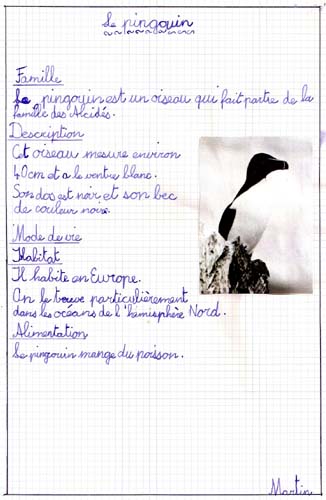 Le pingouin
Famille
Le pingouin est un oiseau qui fait partie de la
famille des Alcidés.
Description
Cet oiseau mesure environ
40cm et a le ventre blanc.
Son dos est noir et son bec
de couleur noire.
Mode de vie
Habitat
Il habite en Europe.
On le trouve particulièrement
dans les océans de l'hémisphère Nord.
Alimentation
Le pingouin mange du poisson.
Martin